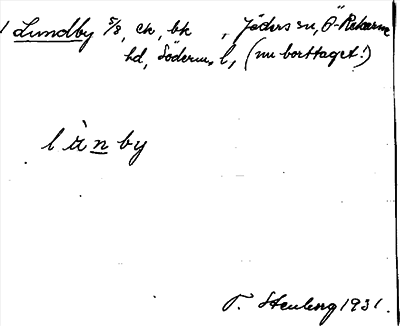 1 Lundby 5/8, ck, bk , Jäders sn, Ö-Rekarne
hd, Söderm. l, (nu borttaget!)
lànby
T. Stenberg 1931.